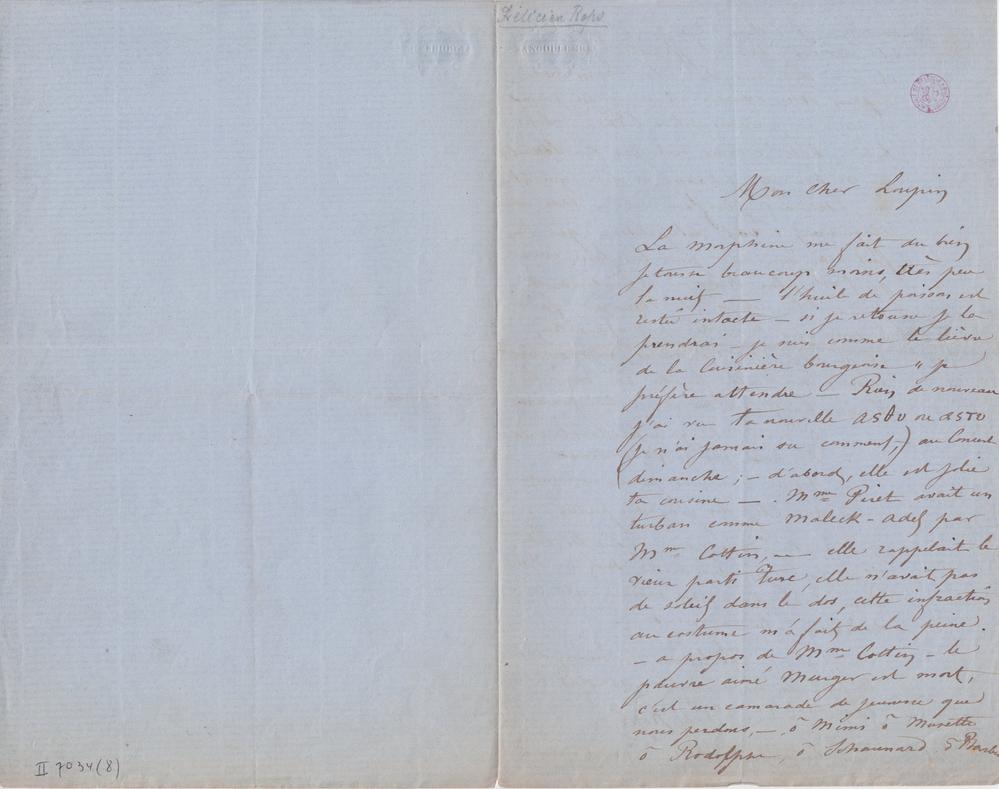 Félicien Rops
Mon cher Loupin
La morphine me fait du bien
je tousse beaucoup moins, très peu
la nuit — l'huile de poisson est
restée intacte — si je retousse je la
prendrai — je suis comme le lièvre
de la Cuisinière bourgeoise " je
préfère attendre — Rien de nouveau
j'ai vu ta nouvelle asdo ou asto
(je n'ai jamais su comment,) au Concert
dimanche ; — d'abord, elle est jolie
ta cousine — . Mme Piret avait un
turban comme Maleck-adel par
Mme Cottin, — elle rappelait le
vieux parti turc, elle n'avait pas
de soleil dans le dos, cette infraction
au costume m'a fait de la peine.
— a propos de Mme Cottin — le
pauvre aimé Murger est mort,
c'est un camarade de jeunesse que
nous perdons, — ô Mimi ô Musette
ô Rodolphe, ô Schaunard ô
II 7034(8)